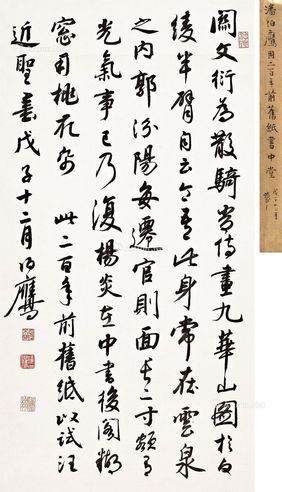 潘伯鷹用二百年前舊紙書中堂
閻文衍為散騎常侍畫九華山圖於白
綾半臂自云令吾此身常在雲泉
之内郭汾陽每遷官則面長二寸額有
光氣事已乃復楊炎在中書後閣糊
窗用桃花帋 此二百年前舊紙以試汪
近聖墨戊子十二月伯鷹